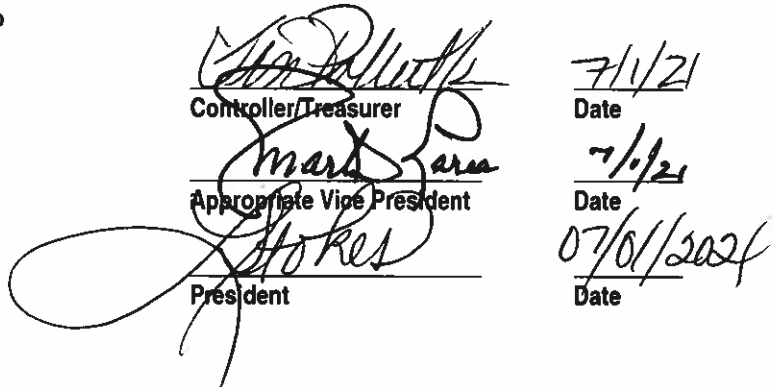 7/1/21
Controller/Treasurer Date
Mark 7/1/21
Appropriate Vice President Date
Stokes 07/01/2021
President Date